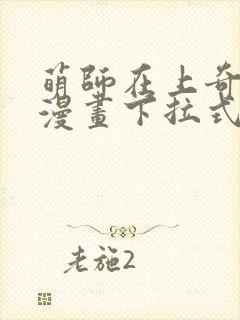 萌師在上奇
漫畫下拉式
老施2